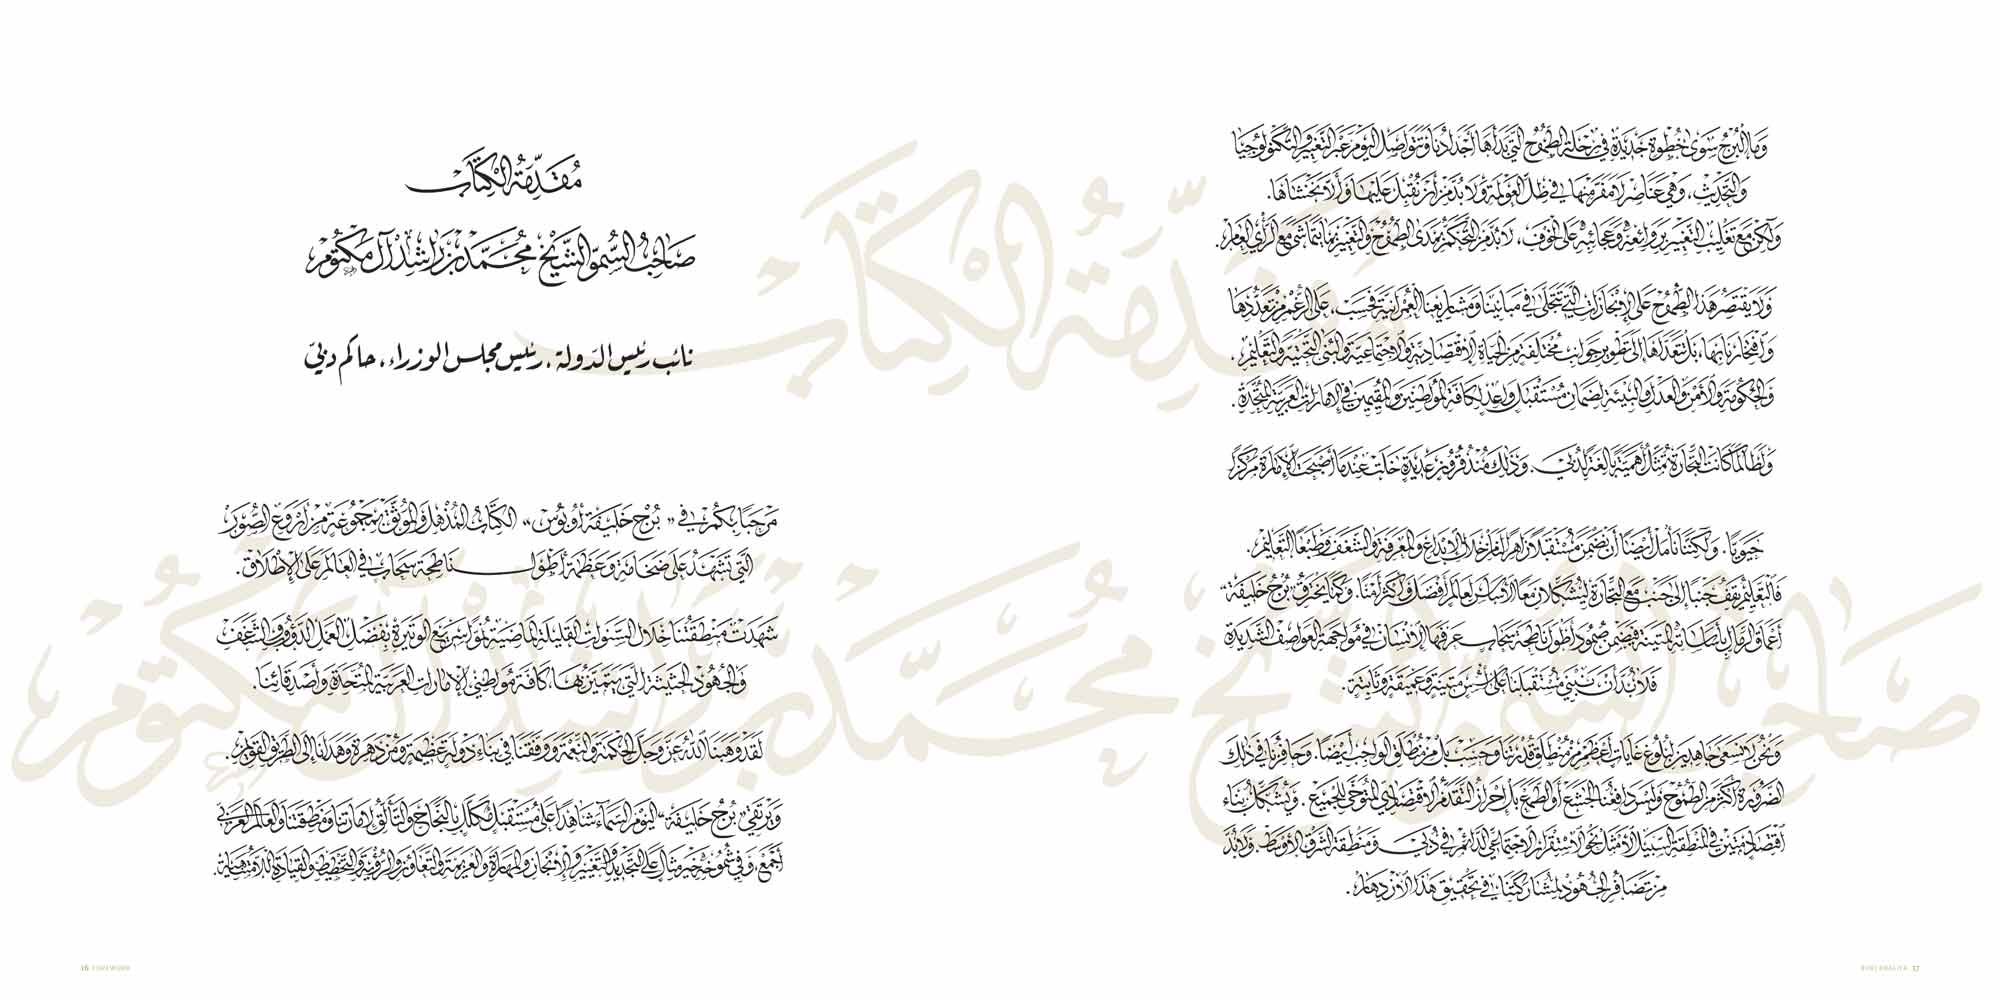 مُقَدِّمَةُ الكِتَابِ
صَاحِبُ السُّمُوِّ الشَّيْخ مُحَمَّد بْن رَاشِد آل مَكْتُوم
نائب رئيس الدولة، رئيس مجلس الوزراء، حاكم دبيّ
مَرحَبًا بِكُم في "بُرْج خَليفَة أوبُوس" الكِتَاب المُذهِل وَالمُوَثَّق بمَجمُوعَة مِن أروَع الصُّوَر
الَّتي تَشهَدُ عَلى ضَخامَة وعَظَمَة أطوَل ناطِحَة سَحَاب في العَالَم عَلى الإطلاق.
شَهِدَت مَنطِقَتُنا خِلال السَّنَوات القَليلَة المَاضِيَة نُمُوًّا سَريع الوَتيرَة بِفَضل العَمَل الدَّؤُوب وَالشَّغَف
وَالجُهُود الحَثيثَة الَّتي يَتَمَيَّزُ بها، كَافَّة مُواطِني الإمَارات العَرَبيَّة المُتَّحِدَة وَأصدِقائِنا.
لَقَد وَهَبَنا اللهُ عَزَّ وَجَلَّ الحِكمَة وَالنِّعمَة وَوَفَّقَنا في بِنَاء دَولَة عَظيمَة وَمُزدَهِرَة وَهَدانا إلى الطَّريق القَويم.
وَيَرتَقي "بُرْج خَليفَة" اليَوم السَّمَاء شاهِدًا عَلى مُستَقبَل مُكَلَّل بِالنَّجَاح وَالتَّألُّق لإمارَتِنا وَمَنطِقَتِنا وَالعَالَم العَرَبي
أجمَع، وَفي شُمُوخِه خَير مِثَال عَلى التَّجديد وَالتَّغيير وَالإنجَاز وَالمَهارَة وَالعَزيمَة وَالتَّعَاوُن وَالرُّؤيَة وَالتَّخطيط وَالقِيادَة اللامُتَناهِيَة.
16 FOREWORD
وَمَا البُرْجُ سِوى خُطوَة جَديدَة في رِحلَة الطُّمُوح الَّتي بَدَأها أجدَادُنا وَتَتَواصَل اليَوم عَبر التَّغيير وَالتِّكنُولُوجيَا
وَالتَّحديث، وَهي عَناصِر لا مَفَرَّ مِنها في ظِلِّ العَولَمَة وَلا بُدَّ مِن أن نُقبِل عَلَيها وَألّا نَخشَاها.
وَلكِن مَع تَغليب التَّغيير بِرَوائِعِه وَعَجائِبِه عَلى الخَوف، لا بُدَّ مِن التَّحَكُّم بِمَدى الطُّمُوح وَالتَّغيير بِما يَتَماشى مَع الرَّأي العَام.
وَلا يَقتَصِر هَذا الطُّمُوح عَلى الإنجَازات الَّتي تَتَجَلّى في مَبانينَا وَمَشاريعِنا العُمرانيَّة فَحَسب، عَلى الرَّغم مِن تَعَدُّدِها
وَافتِخارِنا بِها، بَل تَعَدّاها إلى تَطوير جَوانِب مُختَلِفَة مِن الحَيَاة الاقتِصاديَّة وَالاجتِماعيَّة وَالبُنى التَّحتيَّة وَالتَّعليم.
وَالحُكُومَة وَالأمن وَالعَدل وَالبيئَة لِضَمان مُستَقبَل واعِد لِكافَّة المُواطِنين وَالمُقيمين في الإمَارات العَرَبيَّة المُتَّحِدَة.
وَلَطالَما كانَت التِّجارَة تُمَثِّل أهَمّيَّة بالِغَة لِدُبَي. وَذلِك مُنذُ قُرُون عَديدَة خَلَت عِندَما أصبَحَت الإمارَة مَركَزًا
حَيَويًّا. وَلكِنَّنا نَأمَل أيضًا أن نَضمَن مُستَقبَلًا زاهِرًا لَها مِن خِلال الإبداع وَالمَعرِفَة وَالشَّغَف وَطَبعًا التَّعليم.
فَالتَّعليم يَقِف جَنبًا إلى جَنب مَع التِّجارَة لِيُشَكِّلان مَعًا الأسَاس لِعالَم أفضَل وَأكثَر أمنًا. وَكَما يَختَرِق "بُرْج خَليفَة"
أعماق الرِّمال بِأسَاسَاتِه المَتينَة فَيَضمَن صُمُود أطوَل ناطِحَة سَحَاب عَرَفَها الإنسَان في مُواجَهَة العَواصِف الشَّديدَة
فَلا بُدَّ أن نَبني مُستَقبَلَنا عَلى أُسُس مَتينَة وَعَميقَة وَثابِتَة.
وَنَحنُ لا نَسعى جَاهِدين لِبُلُوغ غَايَات أعظَم مِن مُنطَلَق قُدرَتِنا وَحَسب بَل مِن مُنطَلَق الواجِب أيضًا. وَحافِزُنا في ذلِك
الضَّرُورَة أكثَر مِن الطُّمُوح وَلَيس دافِعُنا الجَشَع أو الطَّمَع بَل إحراز التَّقَدُّم الاقتِصادي المُتَوَخّى لِلجَميع. وَيُشَكِّل بِنَاء
اقتِصَاد مَتين في المَنطِقَة السَّبيل الأمثَل نَحو الاستِقرار الاجتِماعي الدَّائِم في دُبَي وَمَنطِقَة الشَّرق الأوسَط. وَلا بُدَّ
مِن تَضَافُر الجُهُود لِمُشارَكَتِنا في تَحقيق هَذا الازدِهار.
BURJ KHALIFA 17